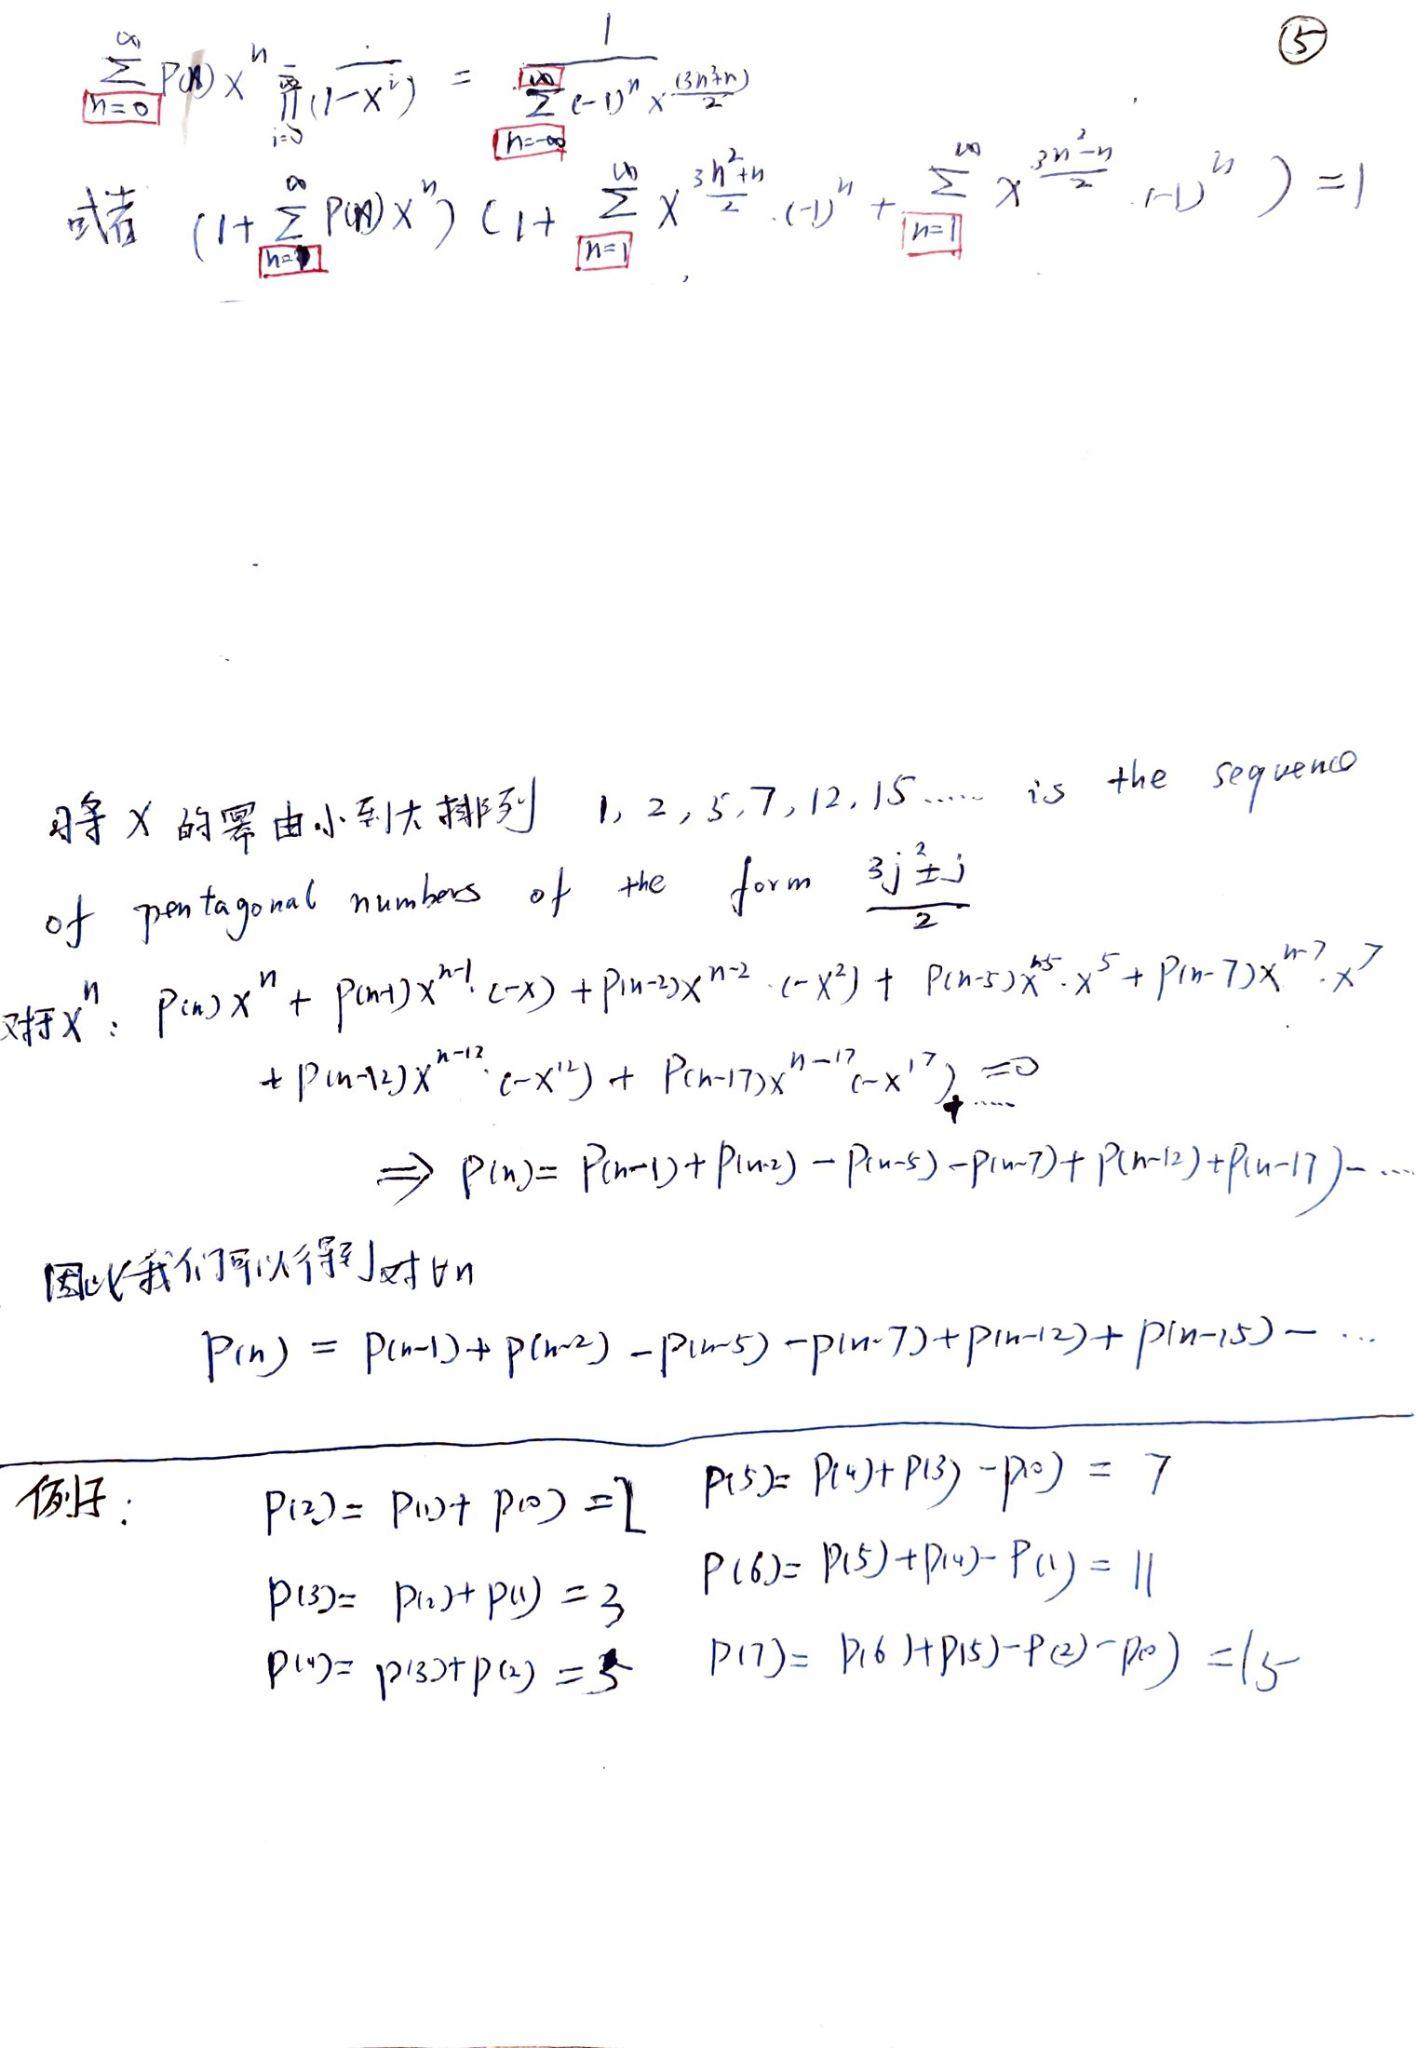 ⑤
∑_{n=0}^{∞} P(n) x^n = ∏_{i=0}^{∞} 1/(1-x^i) = 1/(∑_{n=-∞}^{∞} (-1)^n x^{(3n²+n)/2})
或者 (1+∑_{n=1}^{∞} P(n)x^n) (1+ ∑_{n=1}^{∞} x^{(3n²+n)/2}·(-1)^n + ∑_{n=1}^{∞} x^{(3n²-n)/2}·(-1)^n) =1
将 x 的幂由小到大排列 1, 2, 5, 7, 12, 15 ..... is the sequence
of pentagonal numbers of the form (3j²±j)/2
对于x^n: P(n)x^n + P(n-1)x^{n-1}·(-x) + P(n-2)x^{n-2}·(-x²) + P(n-5)x^{n-5}·x^5 + P(n-7)x^{n-7}·x^7
+ P(n-12)x^{n-12}·(-x^{12}) + P(n-17)x^{n-17}(-x^{17}) + ..... =0
⇒ P(n)= P(n-1)+P(n-2) - P(n-5) - P(n-7) + P(n-12) + P(n-17) - ....
因此我们可以得到对∀n
P(n) = P(n-1) + P(n-2) - P(n-5) - P(n-7) + P(n-12) + P(n-15) - ...
例子:
P(2)= P(1)+ P(0) =2
P(3)= P(2)+ P(1) = 3
P(4)= P(3)+P(2) =5
P(5)= P(4)+P(3) -P(0) = 7
P(6)= P(5)+P(4)- P(1) = 11
P(7)= P(6)+P(5)-P(2)-P(0) =15